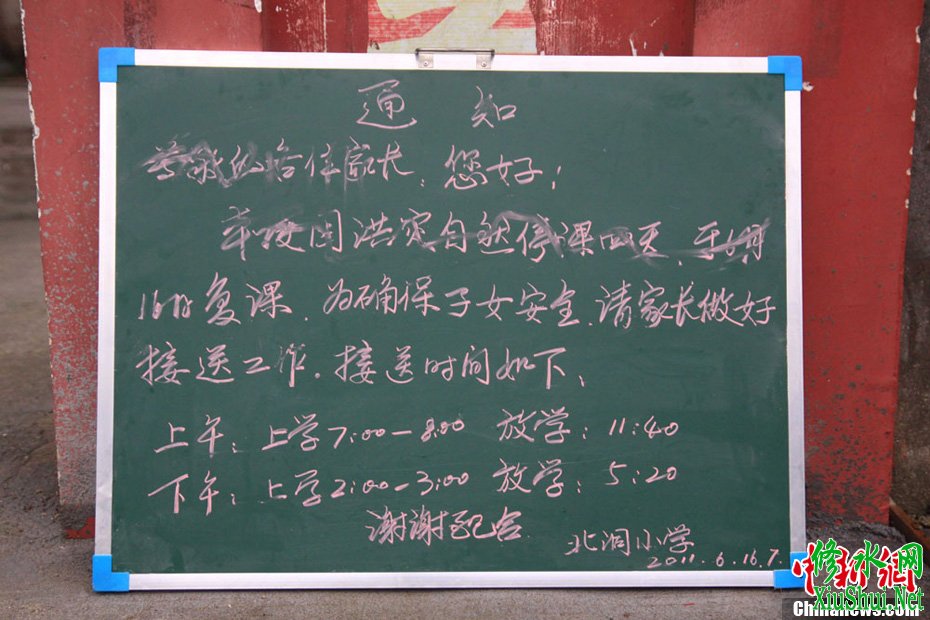 通 知
尊敬的各位家长：您好！
本校因洪灾自然停课四天，于6月
16日复课。为确保子女安全，请家长做好
接送工作。接送时间如下：
上午：上学7:00—8:00 放学：11:40
下午：上学2:00—3:00 放学：5:20
谢谢配合
北洞小学
2011.6.16.7.
修水网
XiuShui.Net
Chinanews.com